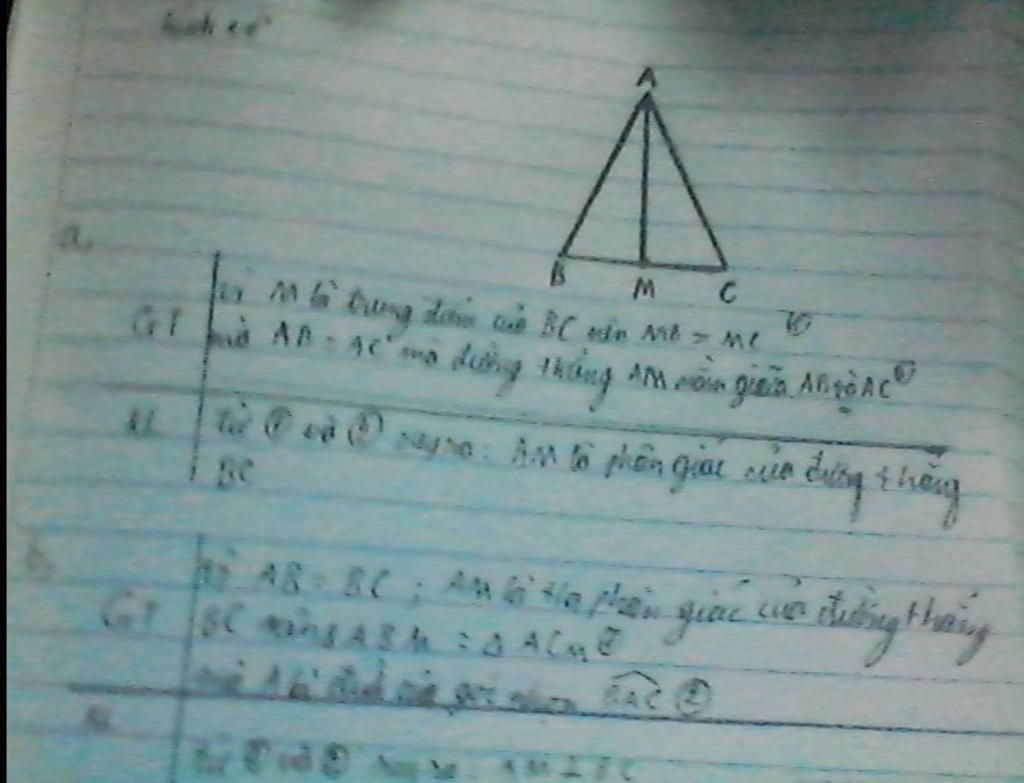 A
B M C
a,
GT Vì M là trung điểm của BC nên MB = MC ①
mà AB = AC mà đường thẳng AM nằm giữa AB và AC ②
KL Từ ① và ② suy ra: AM là phân giác của đường thẳng
BC
b,
GT Vì AB = BC ; AM là tia phân giác của đường thẳng
BC = Δ ACM ①
mà A là đỉnh của góc BAC ②
KL
Từ ① và ② suy ra: AM ⊥ BC